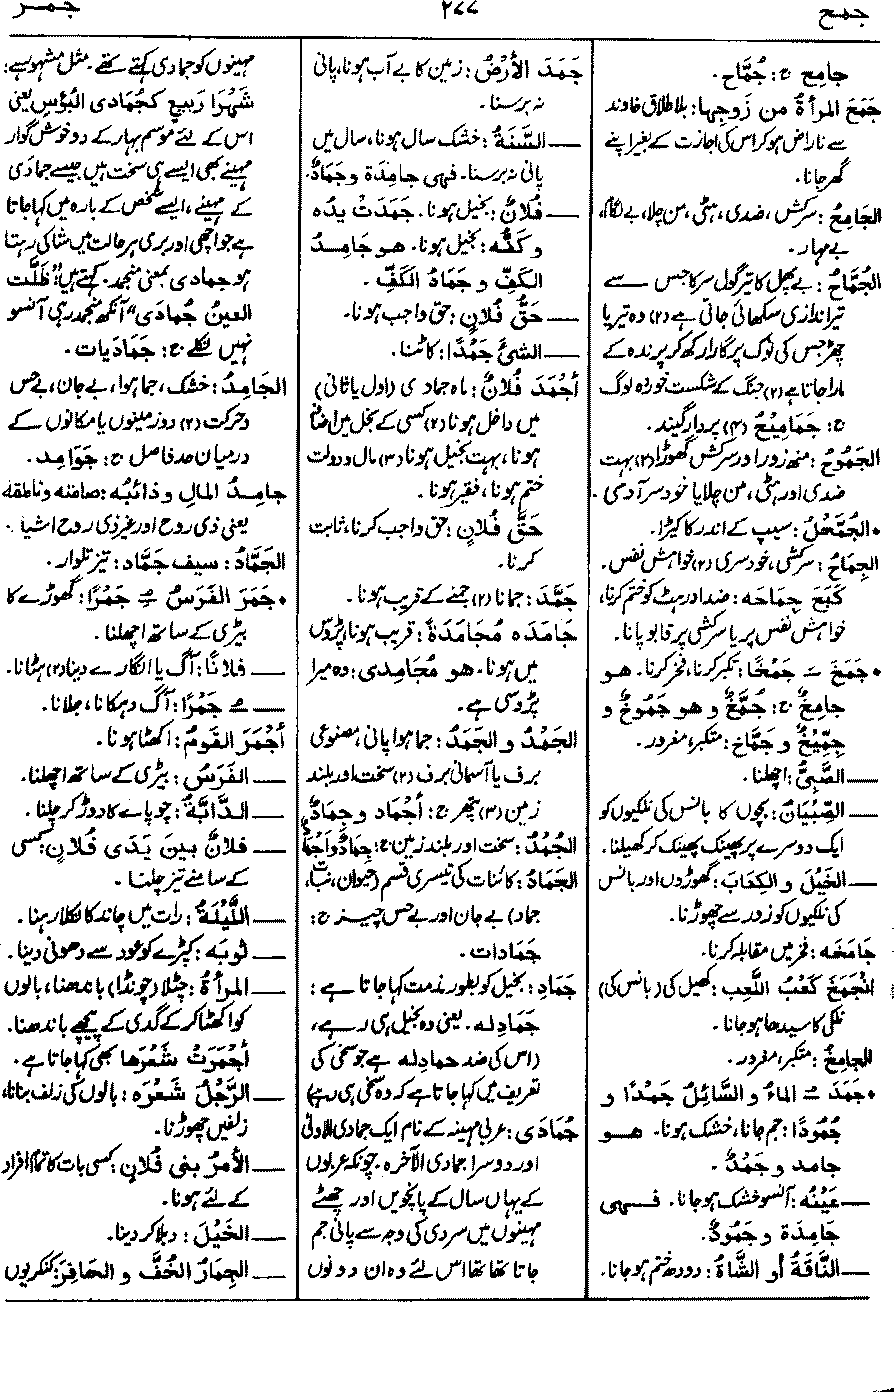 جمح
۲۷۷
جمر
جامِح ج: جُمَّاح.
جَمَحَ المرأةُ من زوجِها: بلا طلاق خاوند
سے ناراض ہو کر اس کی اجازت کے بغیر اپنے
گھر جانا.
الجَامِحُ: سرکش، ضدی، ہٹی، من چلا، بے لگام،
بے مہار.
الجُمَّاحُ: بے پھل کا تیر گول سر کا جس سے
تیر اندازی سکھائی جاتی ہے (۲) وہ تیر یا
چھڑ جس کی نوک پر گارا رکھ کر پرندہ کے
مارا جاتا ہے (۲) جنگ کے شکست خوردہ لوگ
ج: جَمَامِيحُ (۴) بردار گیند.
الجَمُوحُ: منھ زور اور سرکش گھوڑا (۲) بہت
ضدی اور ہٹی، من چلا یا خود سر آدمی.
• الجُمَّحْلُ: سیپ کے اندر کا کیڑا.
الجِمَاحُ: سرکشی، خود سری (۲) خواہش نفس.
كَبَحَ جِمَاحَه: ضد اور ہٹ کو ختم کرنا،
خواہش نفس پر یا سرکشی پر قابو پانا.
• جَمَخَ ـَ جَمْخًا: تکبر کرنا، فخر کرنا. هو
جامِخٌ ج: جُمَّخٌ و هو جَمُوخٌ و
جِمِّيخٌ و جَمَّاخ: متکبر، مغرور.
— الصَّبِيُّ: اچھلنا.
— الصِّبْيَانُ: بچوں کا بانس کی نلکیوں کو
ایک دوسرے پر پھینک پھینک کر کھیلنا.
— الخَيْلَ و الكِعَابَ: گھوڑوں اور بانس
کی نلکیوں کو زور سے چھوڑنا.
جَامَخَه: فخر میں مقابلہ کرنا.
انْجَمَخَ كَعْبُ اللَّعِب: کھیل کی (بانس کی)
نلکی کا سیدھا ہو جانا.
الجامِخُ: متکبر، مغرور.
• جَمَدَ ـُ الماءُ و السَّائِلُ جَمْدًا و
جُمُودًا: جم جانا، خشک ہونا. هو
جامد و جَمْدٌ.
— عَيْنُه: آنسو خشک ہو جانا. فهي
جَامِدَة و جَمُودٌ.
— النَّاقَةُ أو الشَّاةُ: دودھ ختم ہو جانا.
جَمَدَ الأَرْضُ: زمین کا بے آب ہونا، پانی
نہ برسنا.
— السَّنَةُ: خشک سال ہونا، سال میں
پانی نہ برسنا. فهي جامِدَة و جَمَادٌ.
— فُلَانٌ: بخیل ہونا. جَمَدَتْ يَدُه
و كَفُّه: بخیل ہونا. هو جَامِدُ
الكَفِّ و جَمَادُ الكَفِّ.
— حَقُّ فُلَانٍ: حق واجب ہونا.
— الشئَ جَمْدًا: کاٹنا.
أَجْمَدَ فُلَانٌ: ماہ جمادی (اول یا ثانی)
میں داخل ہونا (۲) کسی کے بخل میں اضافہ
ہونا، بہت بخیل ہونا (۳) مال و دولت
ختم ہونا، فقیر ہونا.
حَقَّ فُلَانٍ: حق واجب کرنا، ثابت
کرنا.
جَمَّدَ: جمانا (۲) جمنے کے قریب ہونا.
جَامَدَه مُجَامَدَةً: قریب ہونا، پڑوس
میں ہونا. هو مُجَامِدِی: وہ میرا
پڑوسی ہے.
الجَمْدُ و الجَمَدُ: جما ہوا پانی، مصنوعی
برف یا آسمانی برف (۲) سخت اور بلند
زمین (۳) پتھر ج: أَجْمَاد و جِمَادٌ.
الجُمْدُ: سخت اور بلند زمین ج: جِمَادٌ و أَجْمَادٌ
الجَمَادُ: کائنات کی تیسری قسم (حیوان، نبات،
جماد) بے جان اور بے حس چیز ج:
جَمَادات.
جَمَادِ: بخیل کو بطور مذمت کہا جاتا ہے:
جَمَادِ له. یعنی وہ بخیل ہی رہے،
(اس کی ضد حماد له ہے جو سخی کی
تعریف میں کہا جاتا ہے کہ وہ سخی ہی رہے)
جُمَادَى: عربی مہینہ کے نام ایک جمادی الاولیٰ
اور دوسرا جمادی الآخرہ. چونکہ عربوں
کے یہاں سال کے پانچویں اور چھٹے
مہینوں میں سردی کی وجہ سے پانی جم
جاتا تھا اس لئے وہ ان دونوں
مہینوں کو جمادی کہتے تھے. مثل مشہور ہے:
شَهْرَا رَبِيعٍ كَجُمَادَى البُؤْسِ یعنی
اس کے لئے موسم بہار کے دو خوش گوار
مہینے بھی ایسے ہی سخت ہیں جیسے جمادی
کے مہینے، ایسے شخص کے بارہ میں کہا جاتا
ہے جو اچھی اور بری ہر حالت میں شاکی رہتا
ہو جمادی بمعنی منجمد. کہتے ہیں: "ظَلَّت
العينُ جُمادَى" آنکھ منجمد رہی آنسو
نہیں نکلے ج: جمادَيات.
الجَامِدُ: خشک، جما ہوا، بے جان، بے حس
و حرکت (۲) دو زمینوں یا مکانوں کے
درمیان حد فاصل ج: جَوَامِد.
جامِدُ المالِ و ذائِبُه: صامتہ و ناطقہ
یعنی ذی روح اور غیر ذی روح اشیا.
الجَمَّادُ: سیف جَمَّاد: تیز تلوار.
• جَمَزَ الفَرَسُ ـِ جَمْرًا: گھوڑے کا
بیڑی کے ساتھ اچھلنا.
— فلانًا: آگ یا انگارے دینا (۲) ہٹانا.
— ـِ جَمْرًا: آگ دہکانا، جلانا.
أَجْمَرَ القَومُ: اکھٹا ہونا.
— الفَرَسُ: بیڑی کے ساتھ اچھلنا.
— الدَّابَّةُ: چوپائے کا دوڑ کر چلنا.
— فلانٌ بينَ يَدَي فُلانٍ: کسی
کے سامنے تیز چلنا.
— اللَّيْلَةُ: رات میں چاند کا نکلا رہنا.
— ثوبَه: کپڑے کو عود سے دھونی دینا.
— المرأةُ: چٹلا (چونڈا) باندھنا، بالوں
کو اکھٹا کر کے گدی کے پیچھے باندھنا.
أَجْمَرَتْ شَعْرَها بھی کہا جاتا ہے.
— الرَّجُلُ شَعْرَه: بالوں کی زلف بنانا،
زلفیں چھوڑنا.
— الأمرُ بَنِي فُلانٍ: کسی بات کا تمام افراد
کے لئے ہونا.
— الخَيْلَ: دبلا کر دینا.
— الجِمَارُ الخُفَّ و الحَافِرَ: کنکریوں